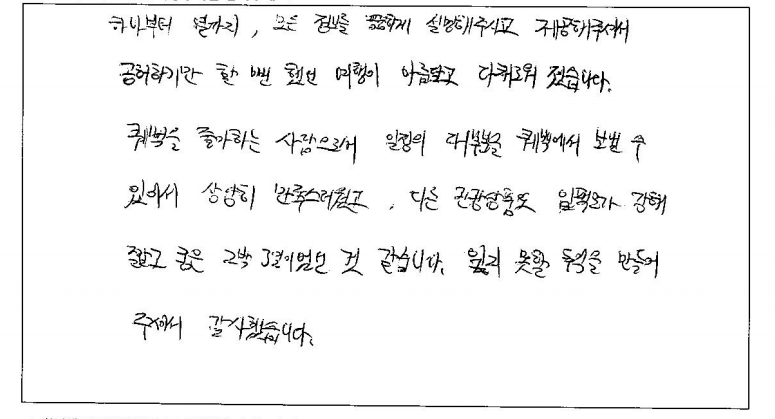 하나부터 열까지, 모든 정보를 꼼꼼하게 설명해주시고 제공해주셔서
공허하기만 할 뻔 했던 여행이 아름답고 다채로워 졌습니다.
퀘벡을 좋아하는 사람으로서 일정의 대부분을 퀘벡에서 보낼 수
있어서 상당히 만족스러웠고, 다른 관광상품도 임팩트가 강해
짧고 굵은 2박 3일이었던 것 같습니다. 잊지 못할 추억을 만들어
주셔서 감사했습니다.